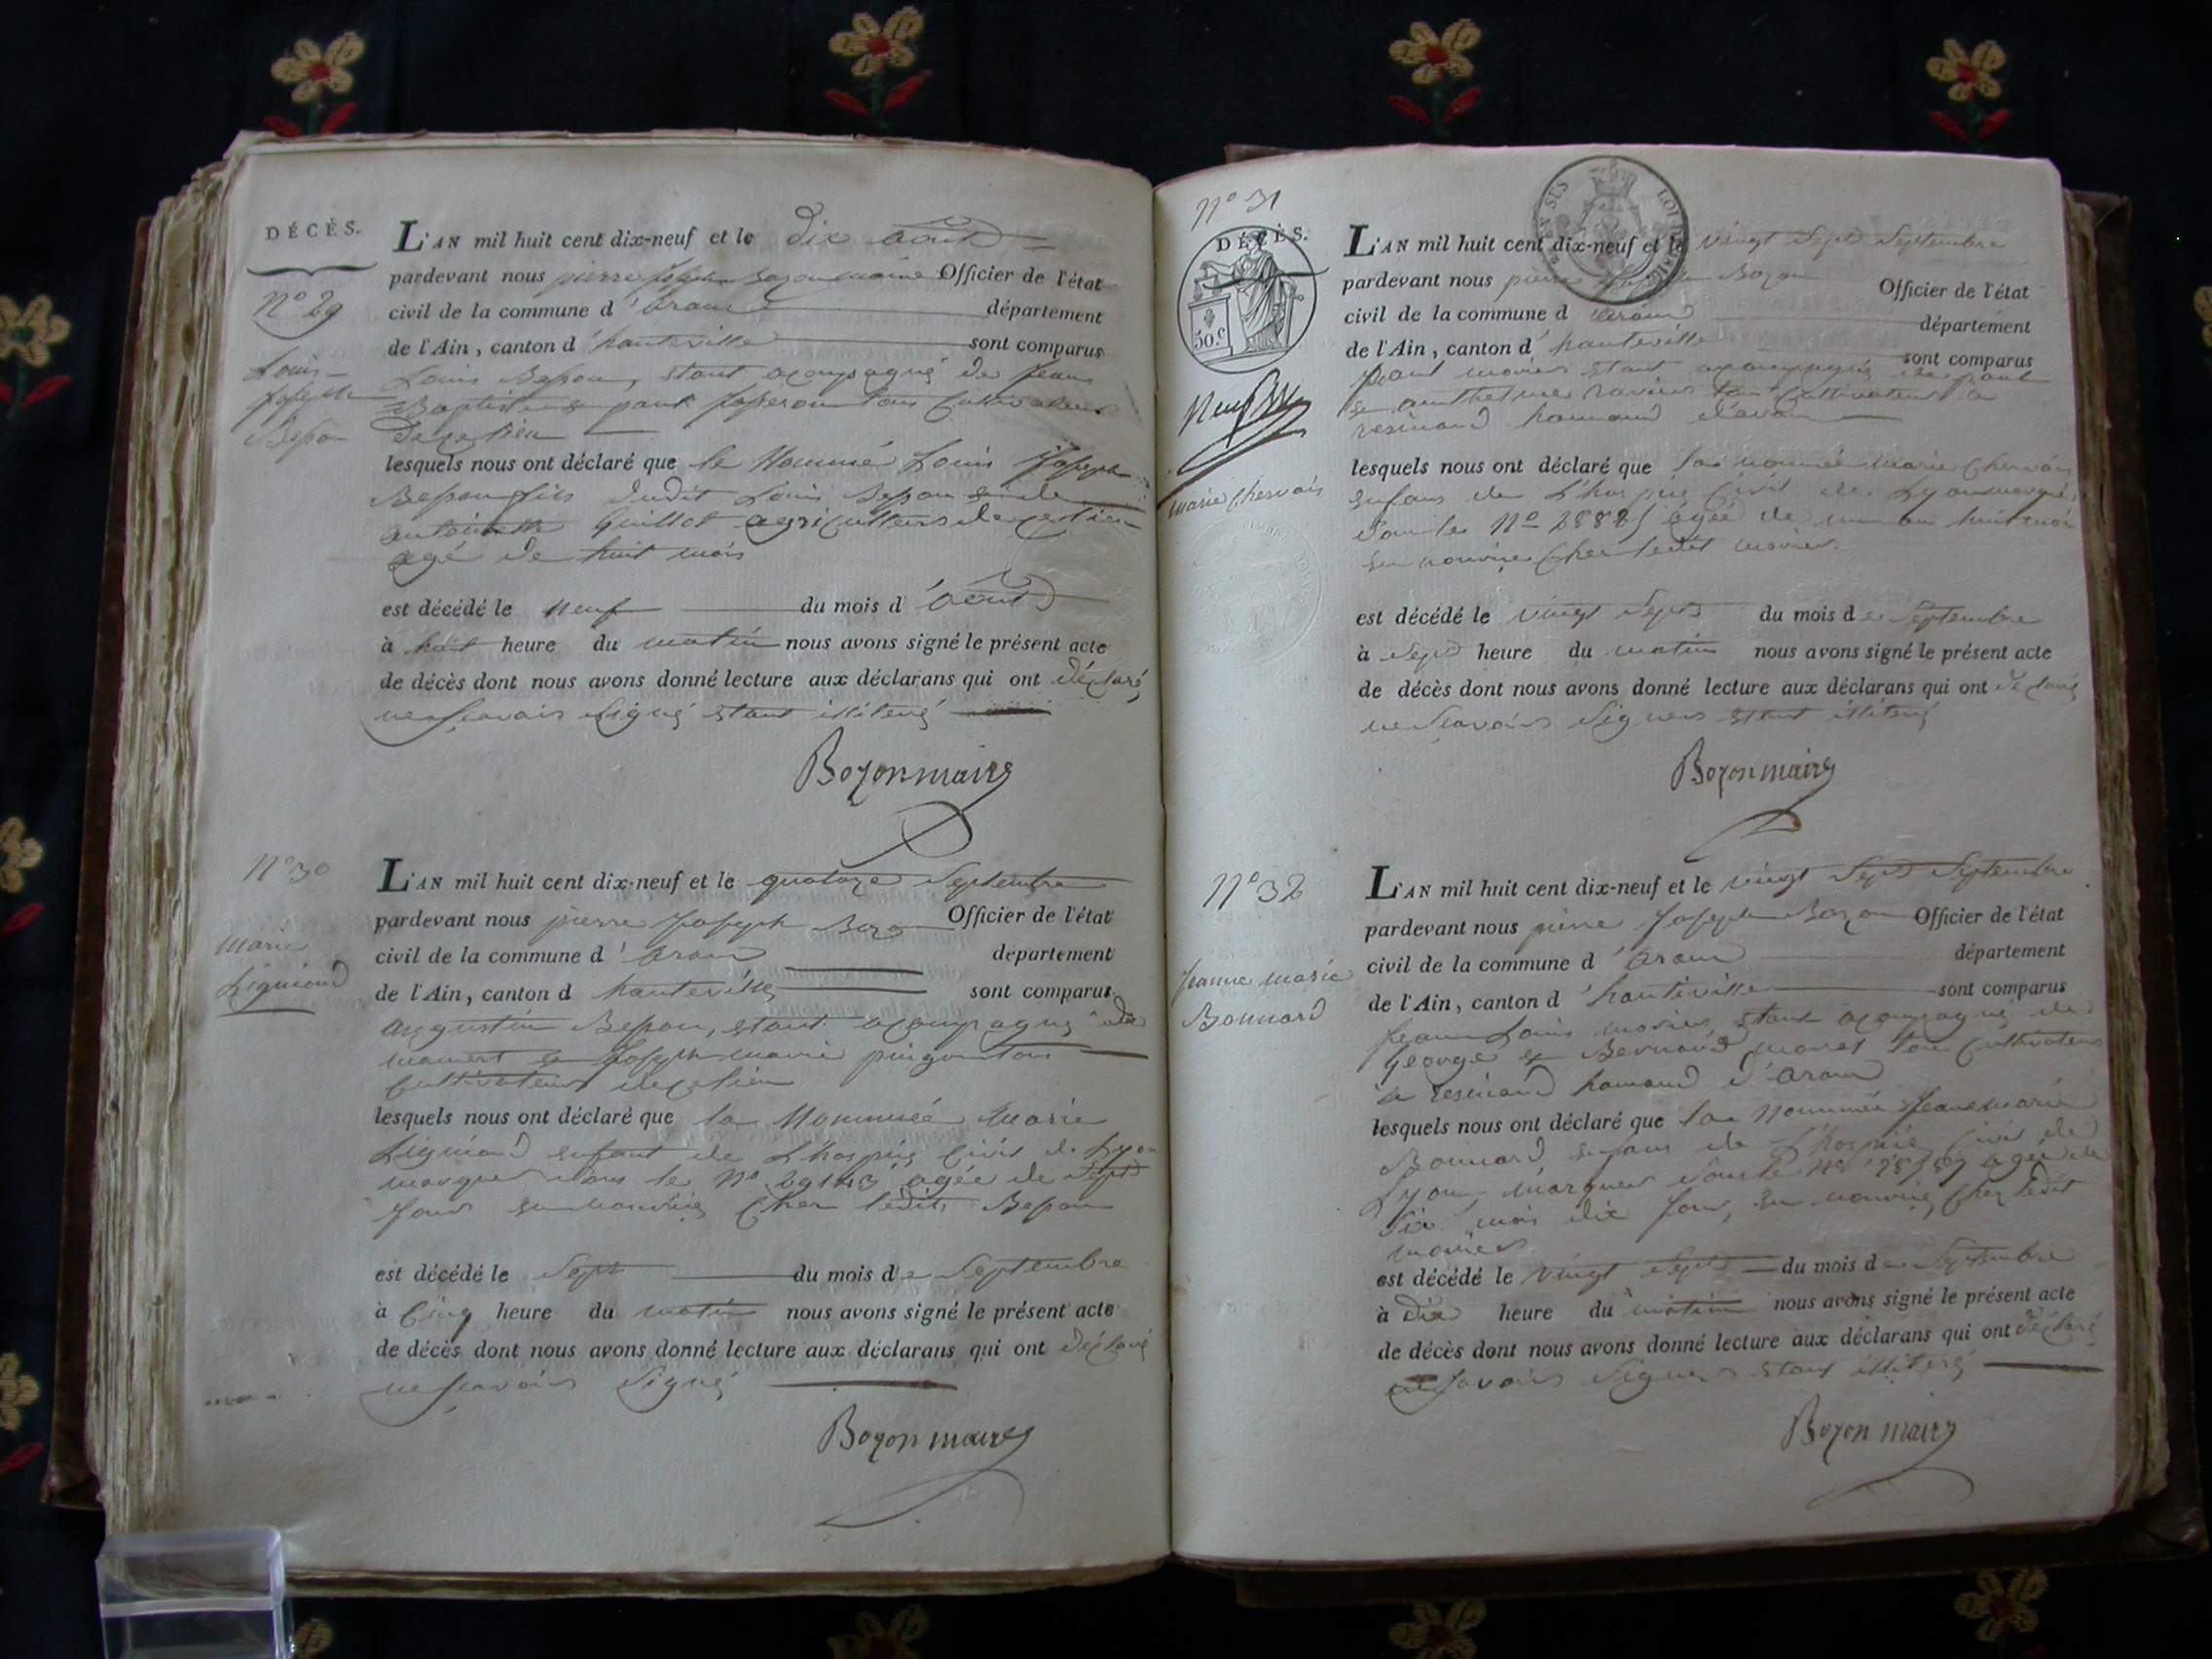 DÉCÈS.
N° 29
Louis
Joseph
Besson
L'AN mil huit cent dix-neuf et le dix août
pardevant nous pierre Joseph Bozon maire Officier de l'état
civil de la commune d'aranc département
de l'Ain, canton d'hauteville sont comparus
Louis Besson, étant acompagné de Jean
Baptiste & paul tous Cultivateurs
de ce lieu
lesquels nous ont déclaré que le Nommé Louis Joseph
Besson fils dudit Louis Besson & de
antoinette Guillot agriculteurs de ce lieu
agé de huit mois
est décédé le neuf du mois d'août
à huit heure du matin nous avons signé le présent acte
de décès dont nous avons donné lecture aux déclarans qui ont déclaré
ne sçavoir signé étant illiteré
Bozon maire
N° 30
marie
Ligniond
L'AN mil huit cent dix-neuf et le quatorze Septembre
pardevant nous pierre Joseph Bozon Officier de l'état
civil de la commune d'aranc département
de l'Ain, canton d hauteville sont comparus
augustin Besson, étant acompagné de
mamert & Joseph marie pingon tous
Cultivateurs de ce lieu
lesquels nous ont déclaré que la Nommée Marie
Ligniond enfant de L'hospice Civil de Lyon
marquée sous le N° 29143 agée de sept
jours en nourrice Chez ledit Besson
est décédé le sept du mois de Septembre
à Cinq heure du matin nous avons signé le présent acte
de décès dont nous avons donné lecture aux déclarans qui ont déclaré
ne sçavoir signé
Bozon maire
N° 31
DÉCÈS.
50.c
marie Chervais
L'AN mil huit cent dix-neuf et le vingt Sept Septembre
pardevant nous pierre Joseph Bozon Officier de l'état
civil de la commune d aranc département
de l'Ain, canton d'hauteville sont comparus
étant acompagné de paul
& anthelme tous Cultivateurs a
resinand hamaud d'aranc
lesquels nous ont déclaré que la nommée marie Chervais
enfans de L'hospice Civil de Lyon marquée
sous le N° agée de un an huit mois
en nourrice Chez ledit
est décédé le vingt Sept du mois de Septembre
à Sept heure du matin nous avons signé le présent acte
de décès dont nous avons donné lecture aux déclarans qui ont déclaré
ne sçavoir signer étant illiteré
Bozon maire
N° 32
Jeanne marie
Bonnard
L'AN mil huit cent dix-neuf et le vingt Sept Septembre
pardevant nous pierre Joseph Bozon Officier de l'état
civil de la commune d'aranc département
de l'Ain, canton d'hauteville sont comparus
Jean Louis étant acompagné de
George & Bernard tous Cultivateurs
a resinand hamaud d'aranc
lesquels nous ont déclaré que la nommée Jeanne marie
Bonnard enfans de L'hospice Civil de
Lyon, marquée sous le N° agée de
dix jours, en nourrice Chez ledit
est décédé le vingt Sept du mois de Septembre
à dix heure du matin nous avons signé le présent acte
de décès dont nous avons donné lecture aux déclarans qui ont déclaré
ne sçavoir signer étant illiteré
Bozon maire